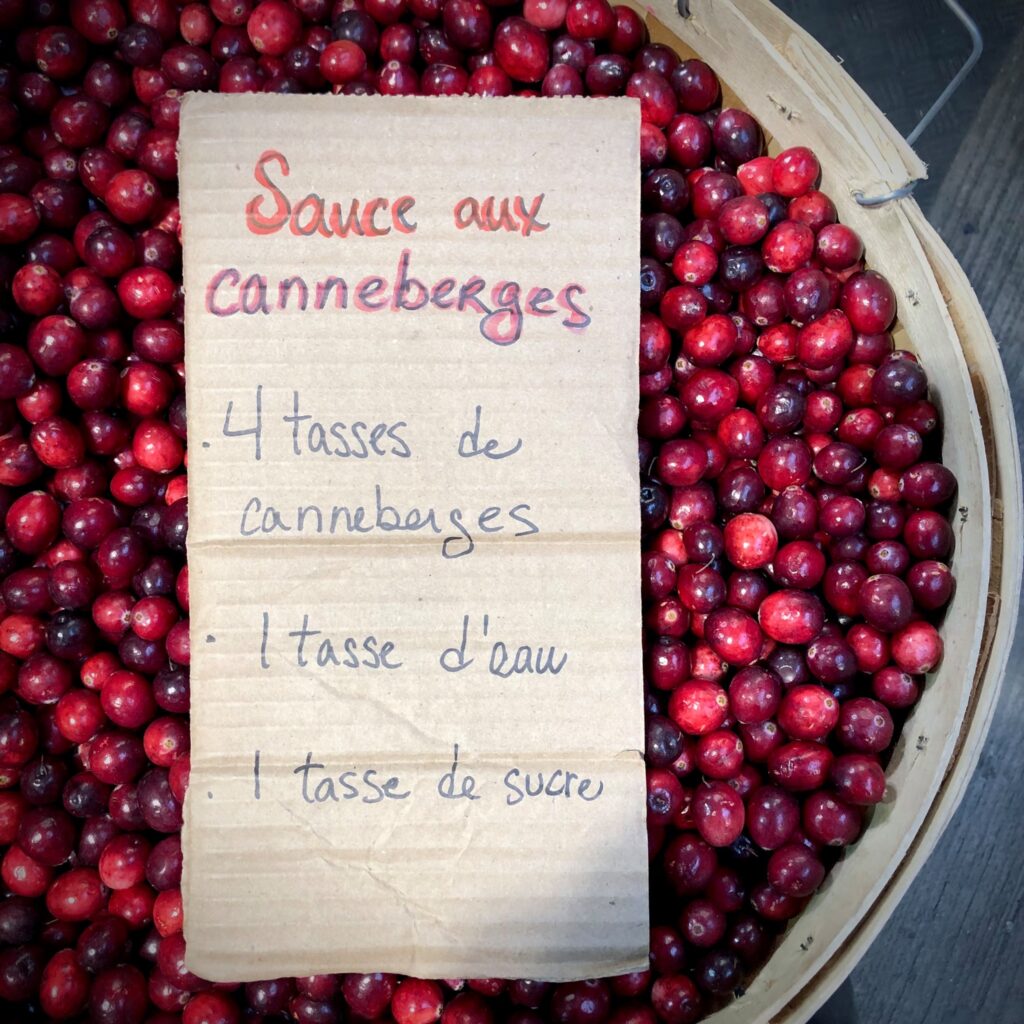 Sauce aux
canneberges
. 4 tasses de
canneberges
. 1 tasse d'eau
. 1 tasse de sucre